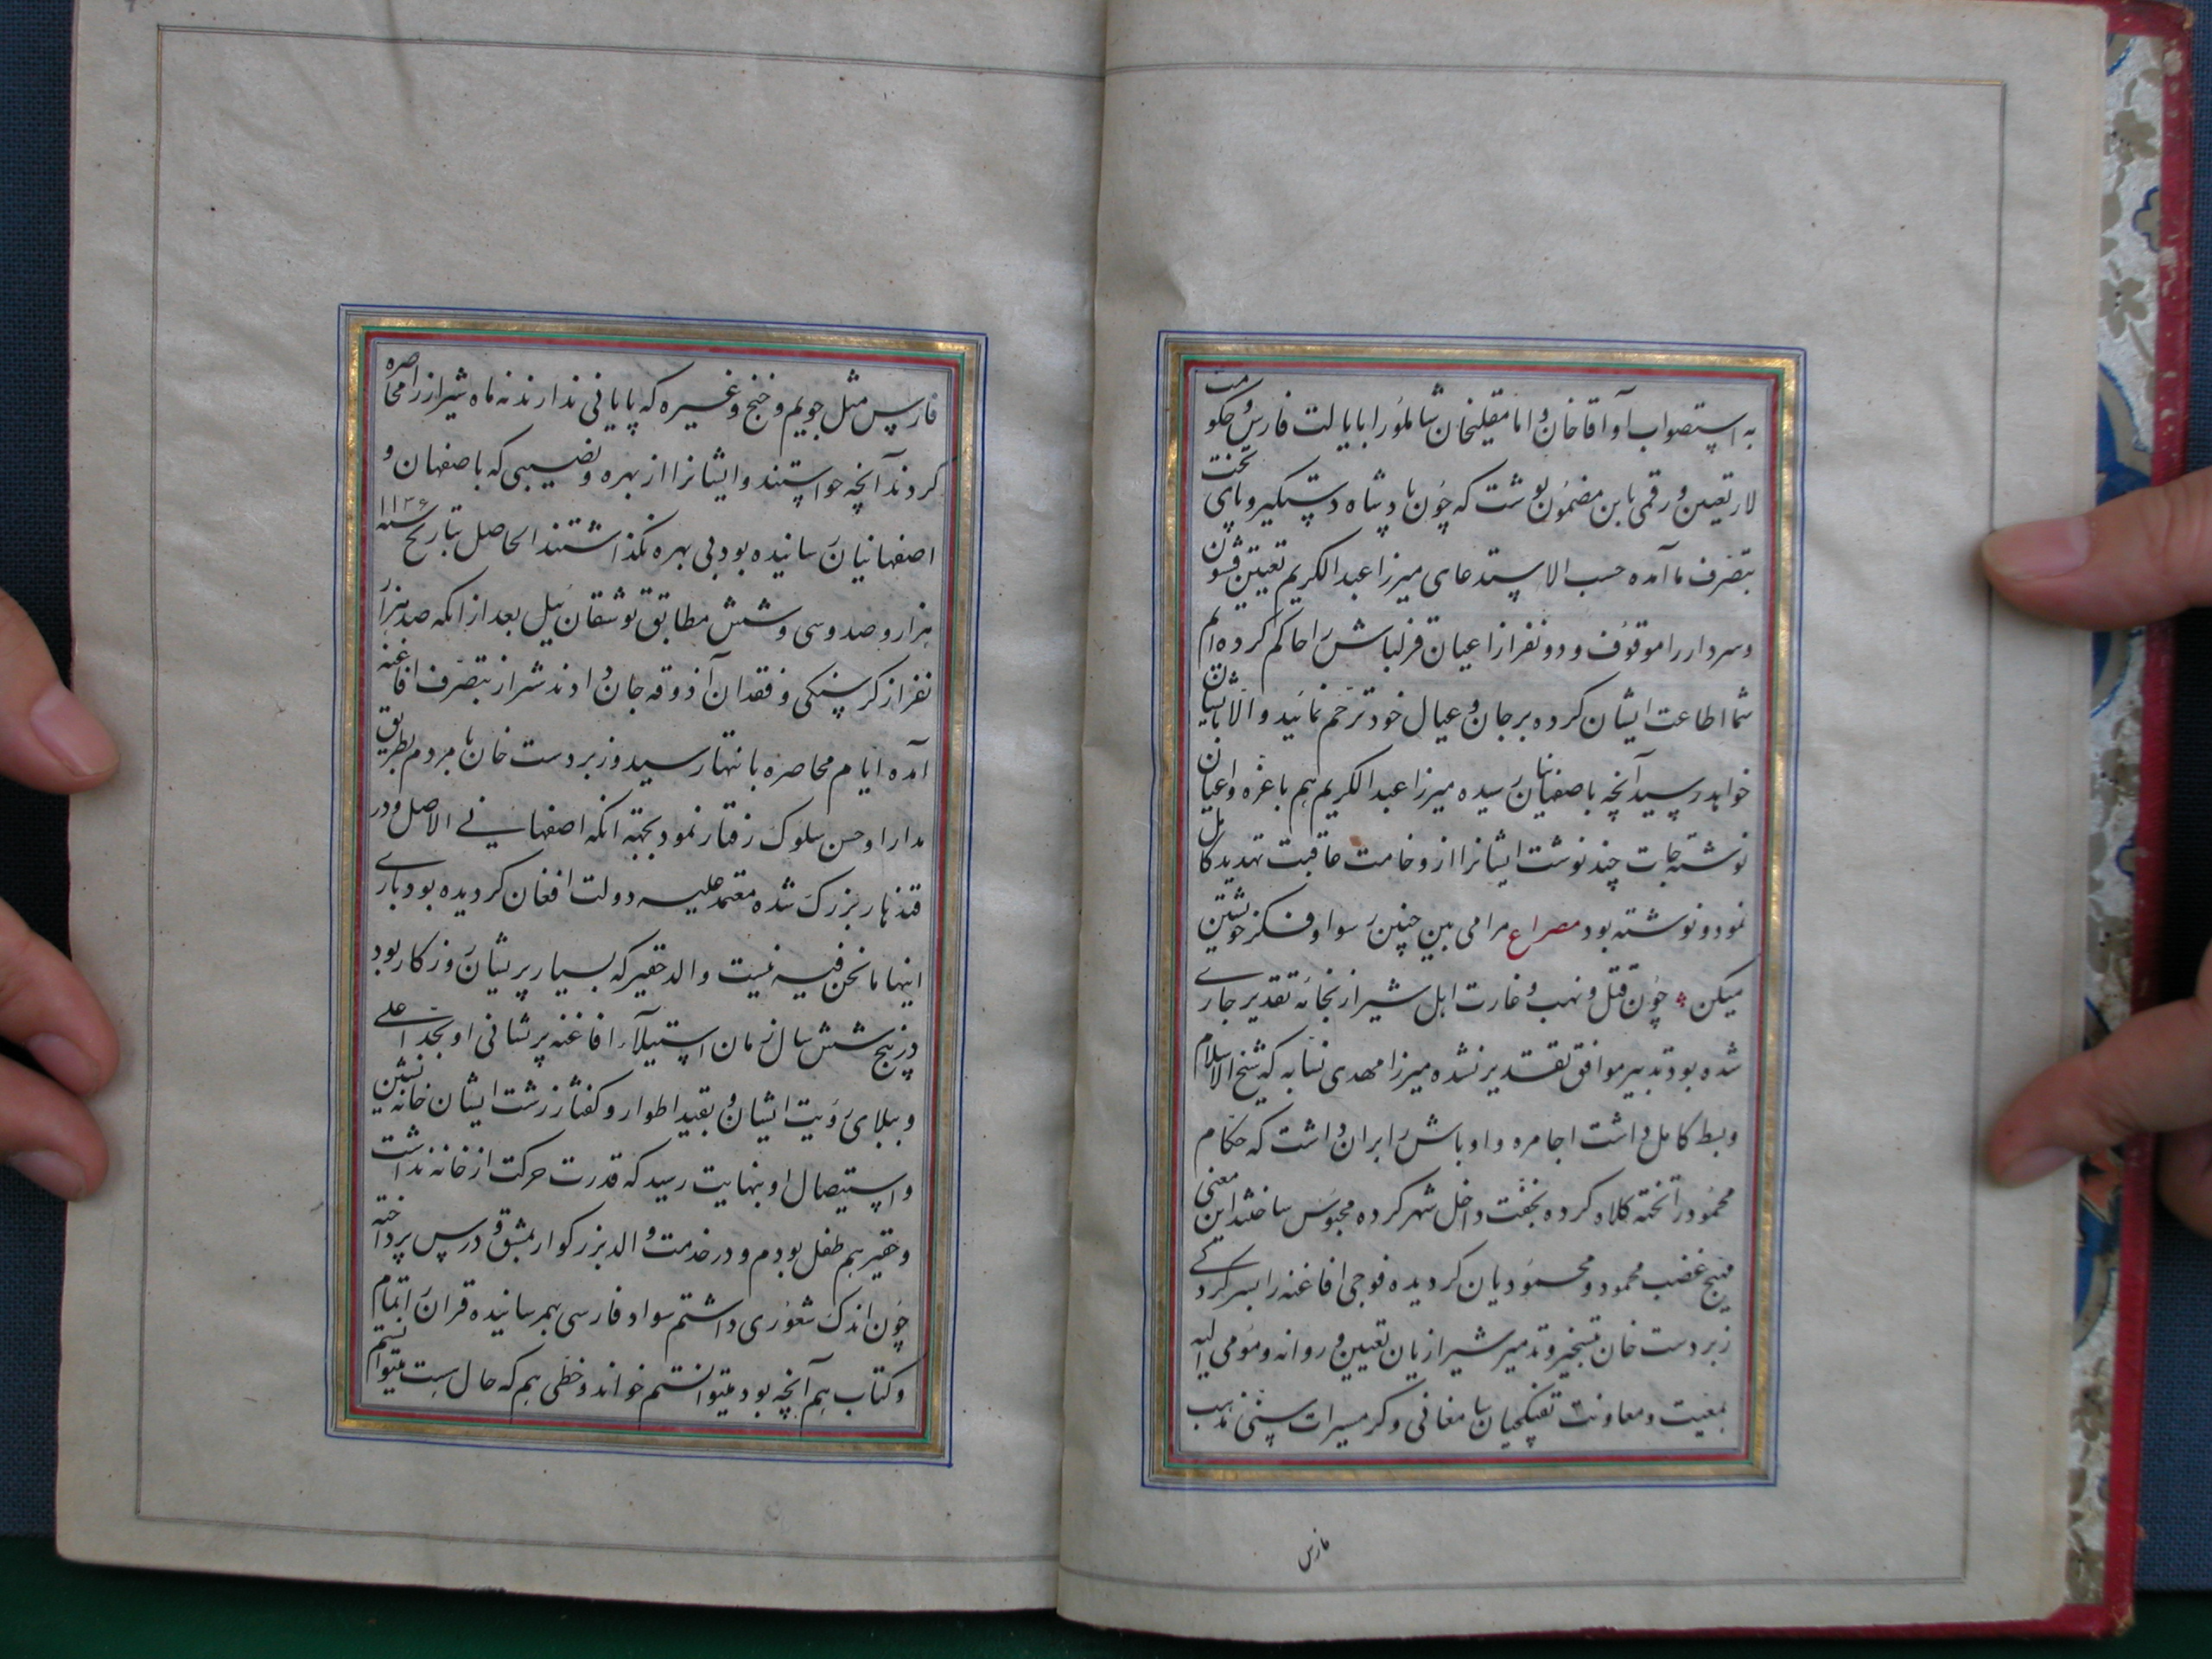 به استصواب او آقا خان و امامقلیخان شاملو را بایالت فارس و حکومت
لار تعیین و رقمی باین مضمون نوشت که چون پادشاه دستگیر و پای تخت
بتصرف ما آمده حسب الاستدعای میرزا عبدالکریم تعیین قشون
و سردار را موقوف و دو نفر از اعیان قزلباش را حاکم کرده ام
شما اطاعت ایشان کرده بر جان و عیال خود ترحم نمائید و الا بایشان
خواهد رسید آنچه باصفهانیان رسیده میرزا عبدالکریم هم باعزه و اعیان
نوشتجات چند نوشت ایشانرا از وخامت عاقبت تهدید کامل
نمود و نوشته بود مصراع مرا می بین چنین رسوا و فکر خویشتن
میکن چون قتل و نهب و غارت اهل شیراز بخانه تقدیر جاری
شده بود تدبیر موافق تقدیر نشده میرزا مهدی نسابه که شیخ الاسلام
و بسط کامل داشت اجامره و اوباش را بران داشت که حکام
محمود را تخته کلاه کرده بخفت داخل شهر کرده محبوس ساختند این معنی
مهیج غضب محمود و محمودیان گردیده فوجی افاغنه را بسرکردگی
زبردست خان بتسخیر و تدمیر شیرازیان تعیین و روانه و مومی الیه
بمعیت و معاونت تفنگچیان و گرمسیرات سنی مذهب
فارس
فارس مثل جویم و خنج و غیره که پایانی ندارند نه ماه شیراز را محاصره
کردند آنچه خواستند و ایشانرا از بهره و نصیبی که باصفهان و
اصفهانیان رسانیده بود بی بهره نگذاشتند الحاصل بتاریخ سنه ۱۱۳۶
هزار و صد و سی و شش مطابق توشقان ئیل بعد از انکه صد هزار
نفر از گرسنگی و فقدان آذوقه جان دادند شیراز بتصرف افاغنه
آمده ایام محاصره بانتها رسید و زبردست خان با مردم بطریق
مدارا و حسن سلوک رفتار نمود بجهته انکه اصفهانی الاصل و در
قندهار بزرگ شده معتمد علیه دولت افغان گردیده بود باری
اینها مانحن فیه نیست والد حقیر که بسیار پریشان روزگار بود
در پنج شش سال زمان استیلاء افاغنه پریشانی او بحد اعلی
و ببلای رؤیت ایشان و بقید اطوار و گفتار زشت ایشان خانه نشین
و استیصال او بنهایت رسید که قدرت حرکت از خانه نداشت
و حقیر هم طفل بودم و در خدمت والد بزرگوار بمشق و درس پرداخته
چون اندک شعوری داشتم سواد فارسی بهمرسانیده قرآن را تمام
و کتاب هم آنچه بود میتوانستم خواند و خطی هم که حال هست میتوانستم